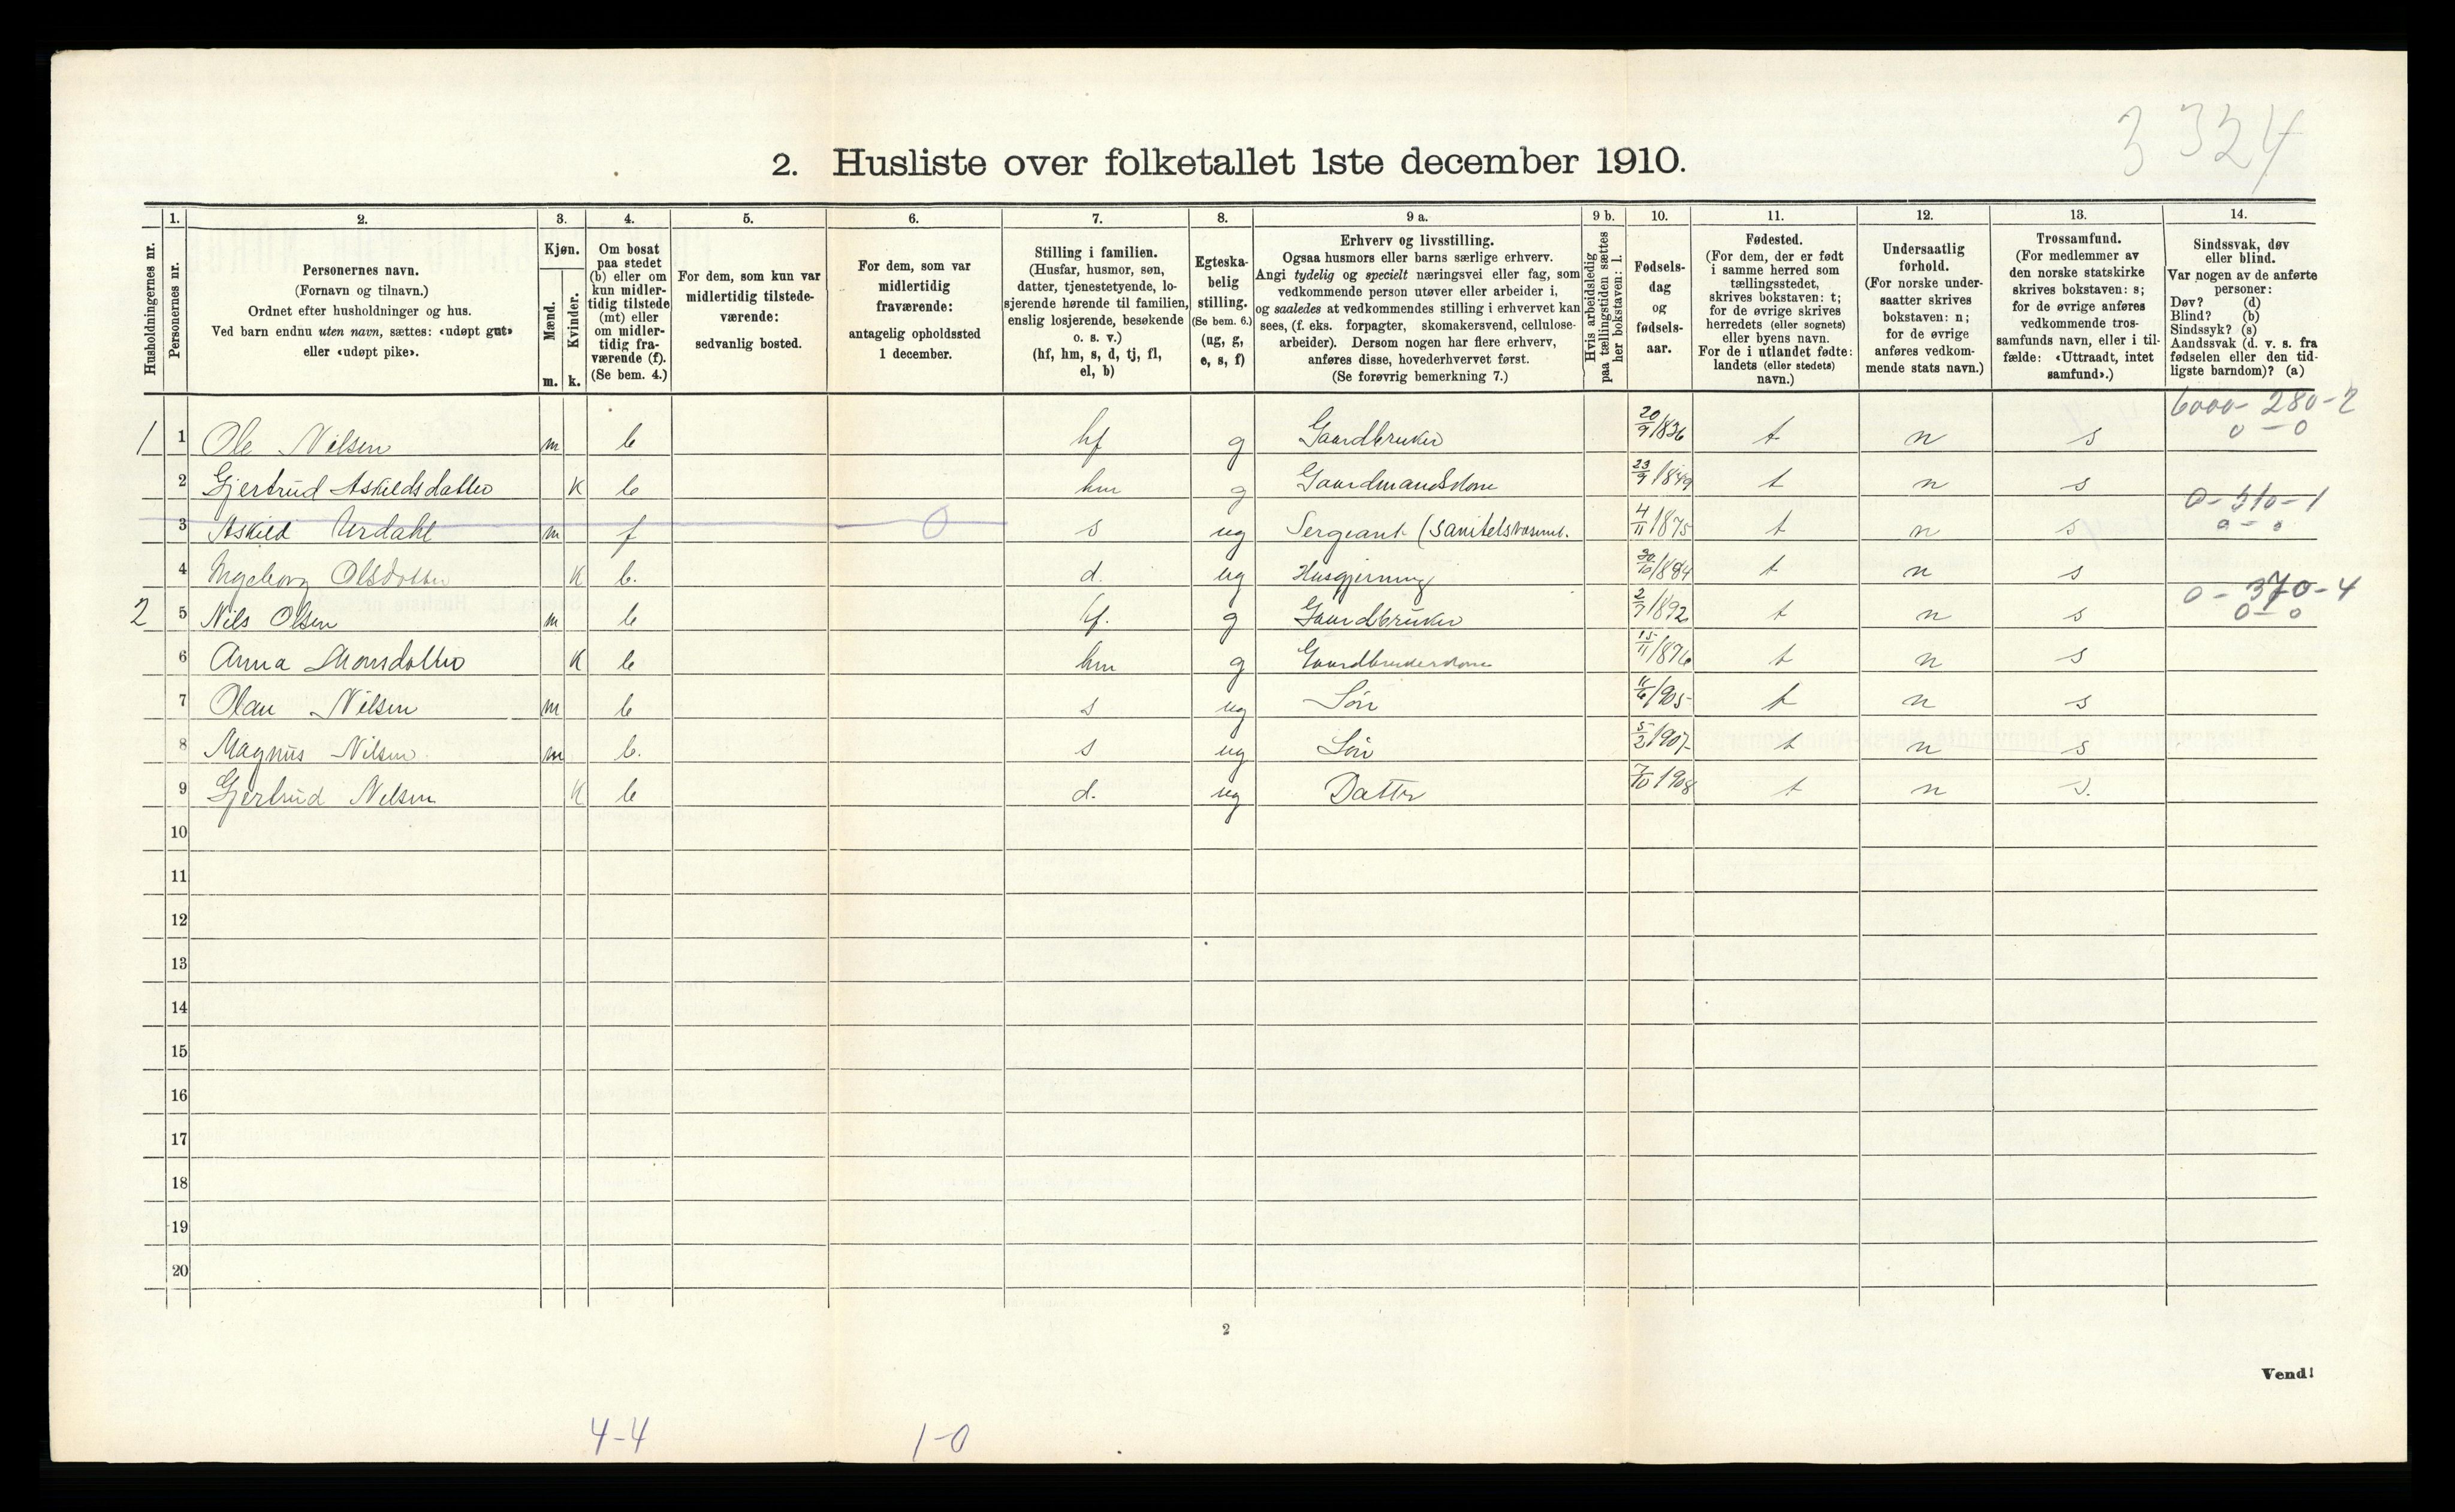 3 324
2. Husliste over folketallet 1ste december 1910.
1. 2. 3. 4. 5. 6. 7. 8. 9 a. 9 b. 10. 11. 12. 13. 14.
Husholdningernes nr.
Personernes nr.
Personernes navn.
(Fornavn og tilnavn.)
Ordnet efter husholdninger og hus.
Ved barn endnu uten navn, sættes: «udøpt gut»
eller «udøpt pike».
Kjøn.
Mænd.
Kvinder.
m. k.
Om bosat
paa stedet
(b) eller om
kun midler-
tidig tilstede
(mt) eller
om midler-
tidig fra-
værende (f).
(Se bem. 4.)
For dem, som kun var
midlertidig tilstede-
værende:
sedvanlig bosted.
For dem, som var
midlertidig
fraværende:
antagelig opholdssted
1 december.
Stilling i familien.
(Husfar, husmor, søn,
datter, tjenestetyende, lo-
sjerende hørende til familien,
enslig losjerende, besøkende
o. s. v.)
(hf, hm, s, d, tj, fl,
el, b)
Egteska-
belig
stilling.
(Se bem. 6.)
(ug, g,
e, s, f)
Erhverv og livsstilling.
Ogsaa husmors eller barns særlige erhverv.
Angi tydelig og specielt næringsvei eller fag, som
vedkommende person utøver eller arbeider i,
og saaledes at vedkommendes stilling i erhvervet kan
sees, (f. eks. forpagter, skomakersvend, cellulose-
arbeider). Dersom nogen har flere erhverv,
anføres disse, hovederhvervet først.
(Se forøvrig bemerkning 7.)
Hvis arbeidsledig
paa tællingstiden sættes
her bokstaven: l.
Fødsels-
dag
og
fødsels-
aar.
Fødested.
(For dem, der er født
i samme herred som
tællingsstedet,
skrives bokstaven: t;
for de øvrige skrives
herredets (eller sognets)
eller byens navn.
For de i utlandet fødte:
landets (eller stedets)
navn.)
Undersaatlig
forhold.
(For norske under-
saatter skrives
bokstaven: n;
for de øvrige
anføres vedkom-
mende stats navn.)
Trossamfund.
(For medlemmer av
den norske statskirke
skrives bokstaven: s;
for de øvrige anføres
vedkommende tros-
samfunds navn, eller i til-
fælde: «Uttraadt, intet
samfund».)
Sindssvak, døv
eller blind.
Var nogen av de anførte
personer:
Døv? (d)
Blind? (b)
Sindssyk? (s)
Aandssvak (d. v. s. fra
fødselen eller den tid-
ligste barndom)? (a)
6000- 280-2
0 - 0
1 1 Ole Nilsen m b hf g Gaardbruker 20/9 1836 t n s
2 Gjertrud Askildsdatter K b hm g Gaardmandskone 23/9 1849 t n s
0-510-1
0-0
3 Askild Urdahl m f 0 s ug Sergeant (Sanitets 4/11 1875 t n s
4 Ingeborg Olsdotter K b. d. ug Husgjerning 30/10 1884 t n s
0-370-4
0-0
2 5 Nils Olsen m b hf. g Gaardbruker 2/7 1892 t n s
6 Anna Monsdotter K b hm g Gaardbrukerkone 15/11 1876 t n s
7 Olav Nilsen m b s ug Søn 11/6 1905 t n s
8 Magnus Nilsen. m b. s ug Søn 5/2 1907 t n s
9 Gjertrud Nilsen K b d. ug Datter 7/10 1908 t n s.
10
11
12
13
14
15
16
17
18
19
20
2
Vend!
4-4 1-0